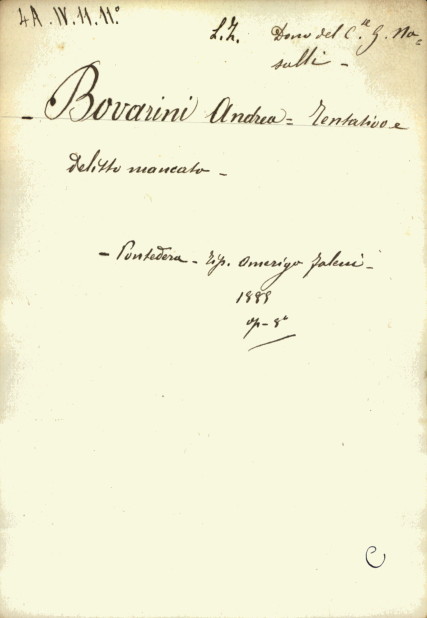 4A. IV. 11. 11°
L. Z. Dono del C.te G. Ro=
selli –
– Bovarini Andrea = Tentativo e
delitto mancato –
– Pontedera – Tip. Amerigo –
1889
op – 8°
C